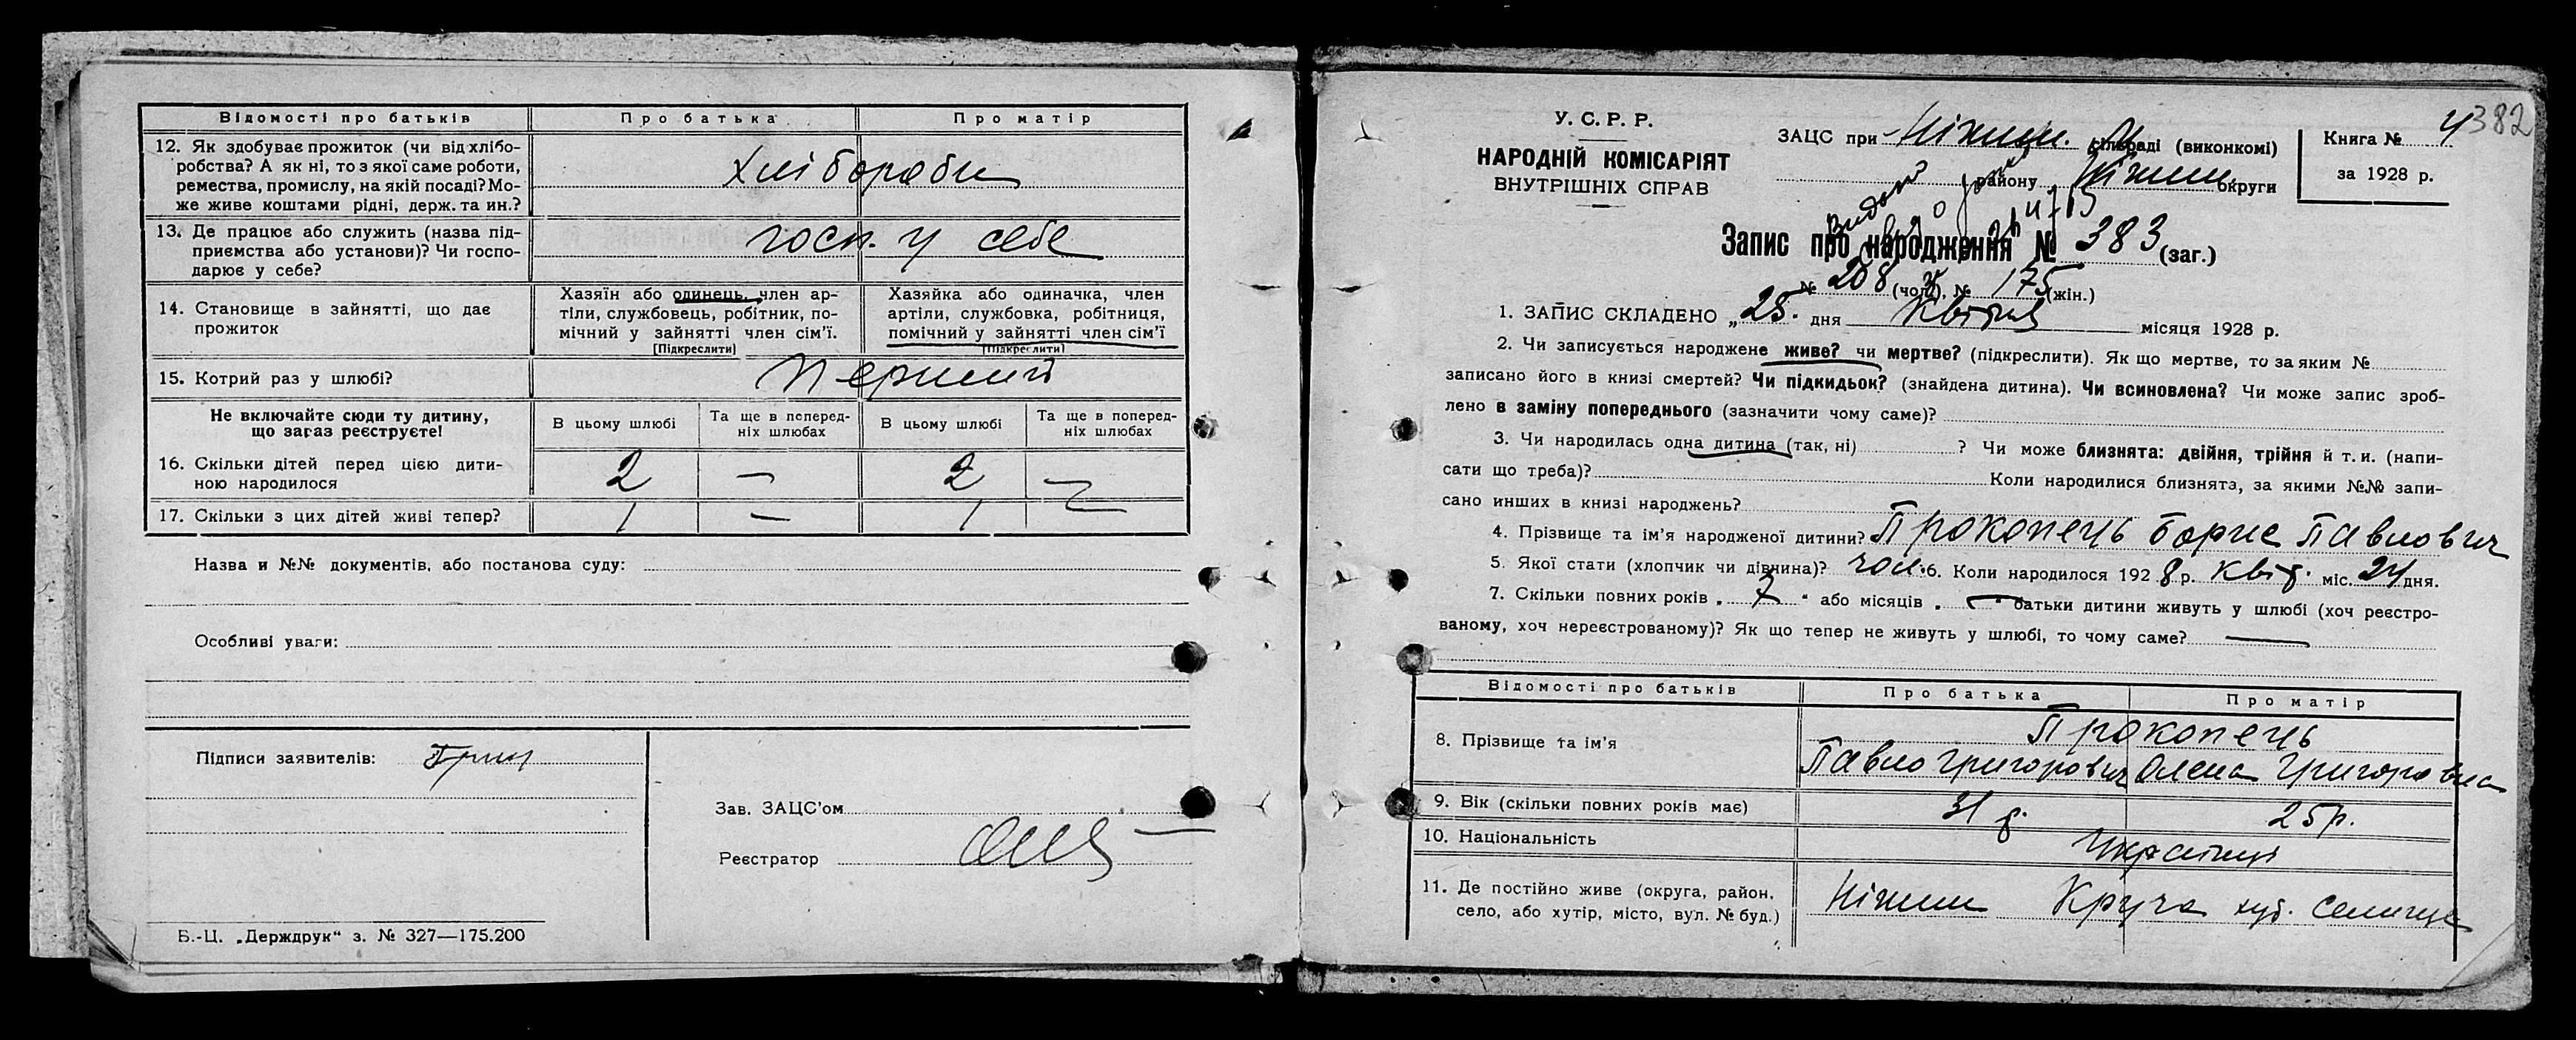 Відомості про батьків Про батька Про матір
12. Як здобуває прожиток (чи від хлібо-
робства? А як ні, то з якої саме роботи,
ремества, промислу, на якій посаді? Мо-
же живе коштами рідні, держ. та ин.?
хлібороби
13. Де працює або служить (назва під-
приємства або установи)? Чи госпо-
дарює у себе?
госп. у себе
14. Становище в зайнятті, що дає
прожиток
Хазяїн або одинець, член ар-
тіли, службовець, робітник, по-
мічний у зайнятті член сім'ї.
[Підкреслити]
Хазяйка або одиначка, член
артіли, службовка, робітниця,
помічний у зайнятті член сім'ї
[Підкреслити]
15. Котрий раз у шлюбі? перший
Не включайте сюди ту дитину,
що зараз реєструєте!
В цьому шлюбі Та ще в поперед-
ніх шлюбах В цьому шлюбі Та ще в поперед-
ніх шлюбах
16. Скільки дітей перед цією дити-
ною народилося 2 — 2 —
17. Скільки з цих дітей живі тепер? 1 — 1 —
Назва и №№ документів, або постанова суду:
Особливі уваги:
Підписи заявителів:
Зав. ЗАЦС'ом
Реєстратор
Б.-Ц. „Держдрук" з. № 327—175.200
382
У. С. Р. Р.
НАРОДНІЙ КОМІСАРІЯТ
ВНУТРІШНІХ СПРАВ
ЗАЦС при Ніжин. сільраді (виконкомі)
району Ніжин. округи
Книга № 4
за 1928 р.
Запис про народження № 383 (заг.)
№ 208 (чол.), № 175 (жін.)
1. ЗАПИС СКЛАДЕНО „25" дня Квітня місяця 1928 р.
2. Чи записується народжене живе? чи мертве? (підкреслити). Як що мертве, то за яким №
записано його в книзі смертей? Чи підкидьок? (знайдена дитина). Чи всиновлена? Чи може запис зроб-
лено в заміну попереднього (зазначити чому саме)?
3. Чи народилась одна дитина (так, ні) ? Чи може близнята: двійня, трійня й т. и. (напи-
сати що треба)? Коли народилися близнята, за якими №№ запи-
сано инших в книзі народжень?
4. Прізвище та ім'я народженої дитини? Прокопець Борис Павлович
5. Якої стати (хлопчик чи дівчина)? чол. 6. Коли народилося 1928 р. квіт. міс. 24 дня.
7. Скільки повних років „7" або місяців „—" батьки дитини живуть у шлюбі (хоч реєстро-
ваному, хоч нереєстрованому)? Як що тепер не живуть у шлюбі, то чому саме? —
Відомості про батьків Про батька Про матір
8. Прізвище та ім'я Прокопець
Павло Григорович Олена Григоровна
9. Вік (скільки повних років має) 31 р. 25 р.
10. Національність Українці
11. Де постійно живе (округа, район,
село, або хутір, місто, вул. № буд.)
Ніжин Круча хут. Селище